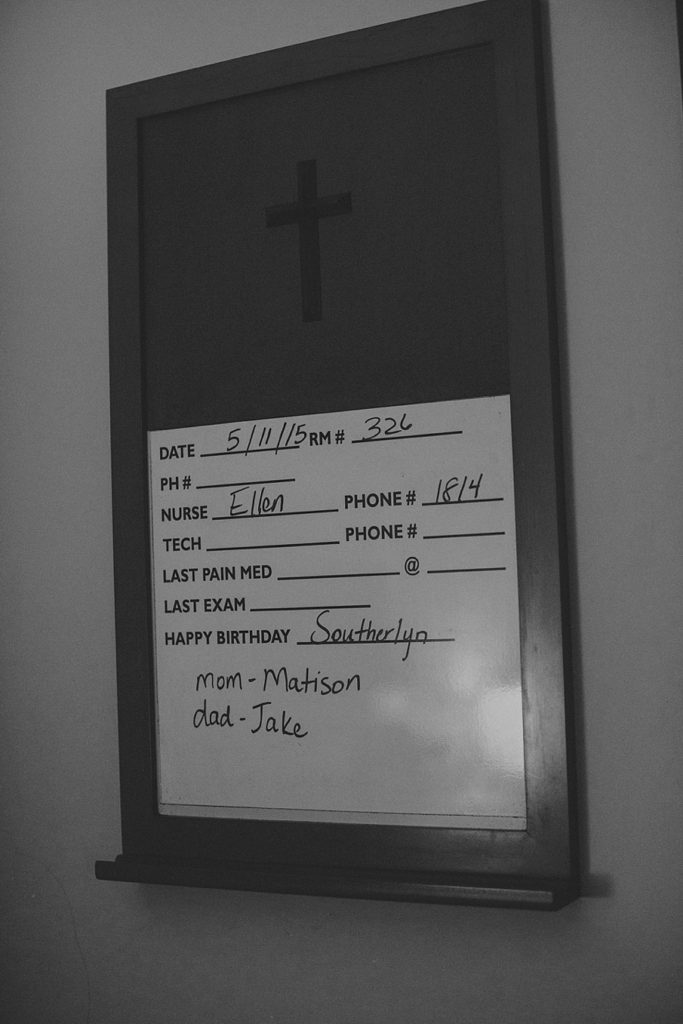 DATE 5/11/15 RM # 326
PH #
NURSE Ellen PHONE # 1814
TECH PHONE #
LAST PAIN MED @
LAST EXAM
HAPPY BIRTHDAY Southerlyn
mom - Matison
dad - Jake